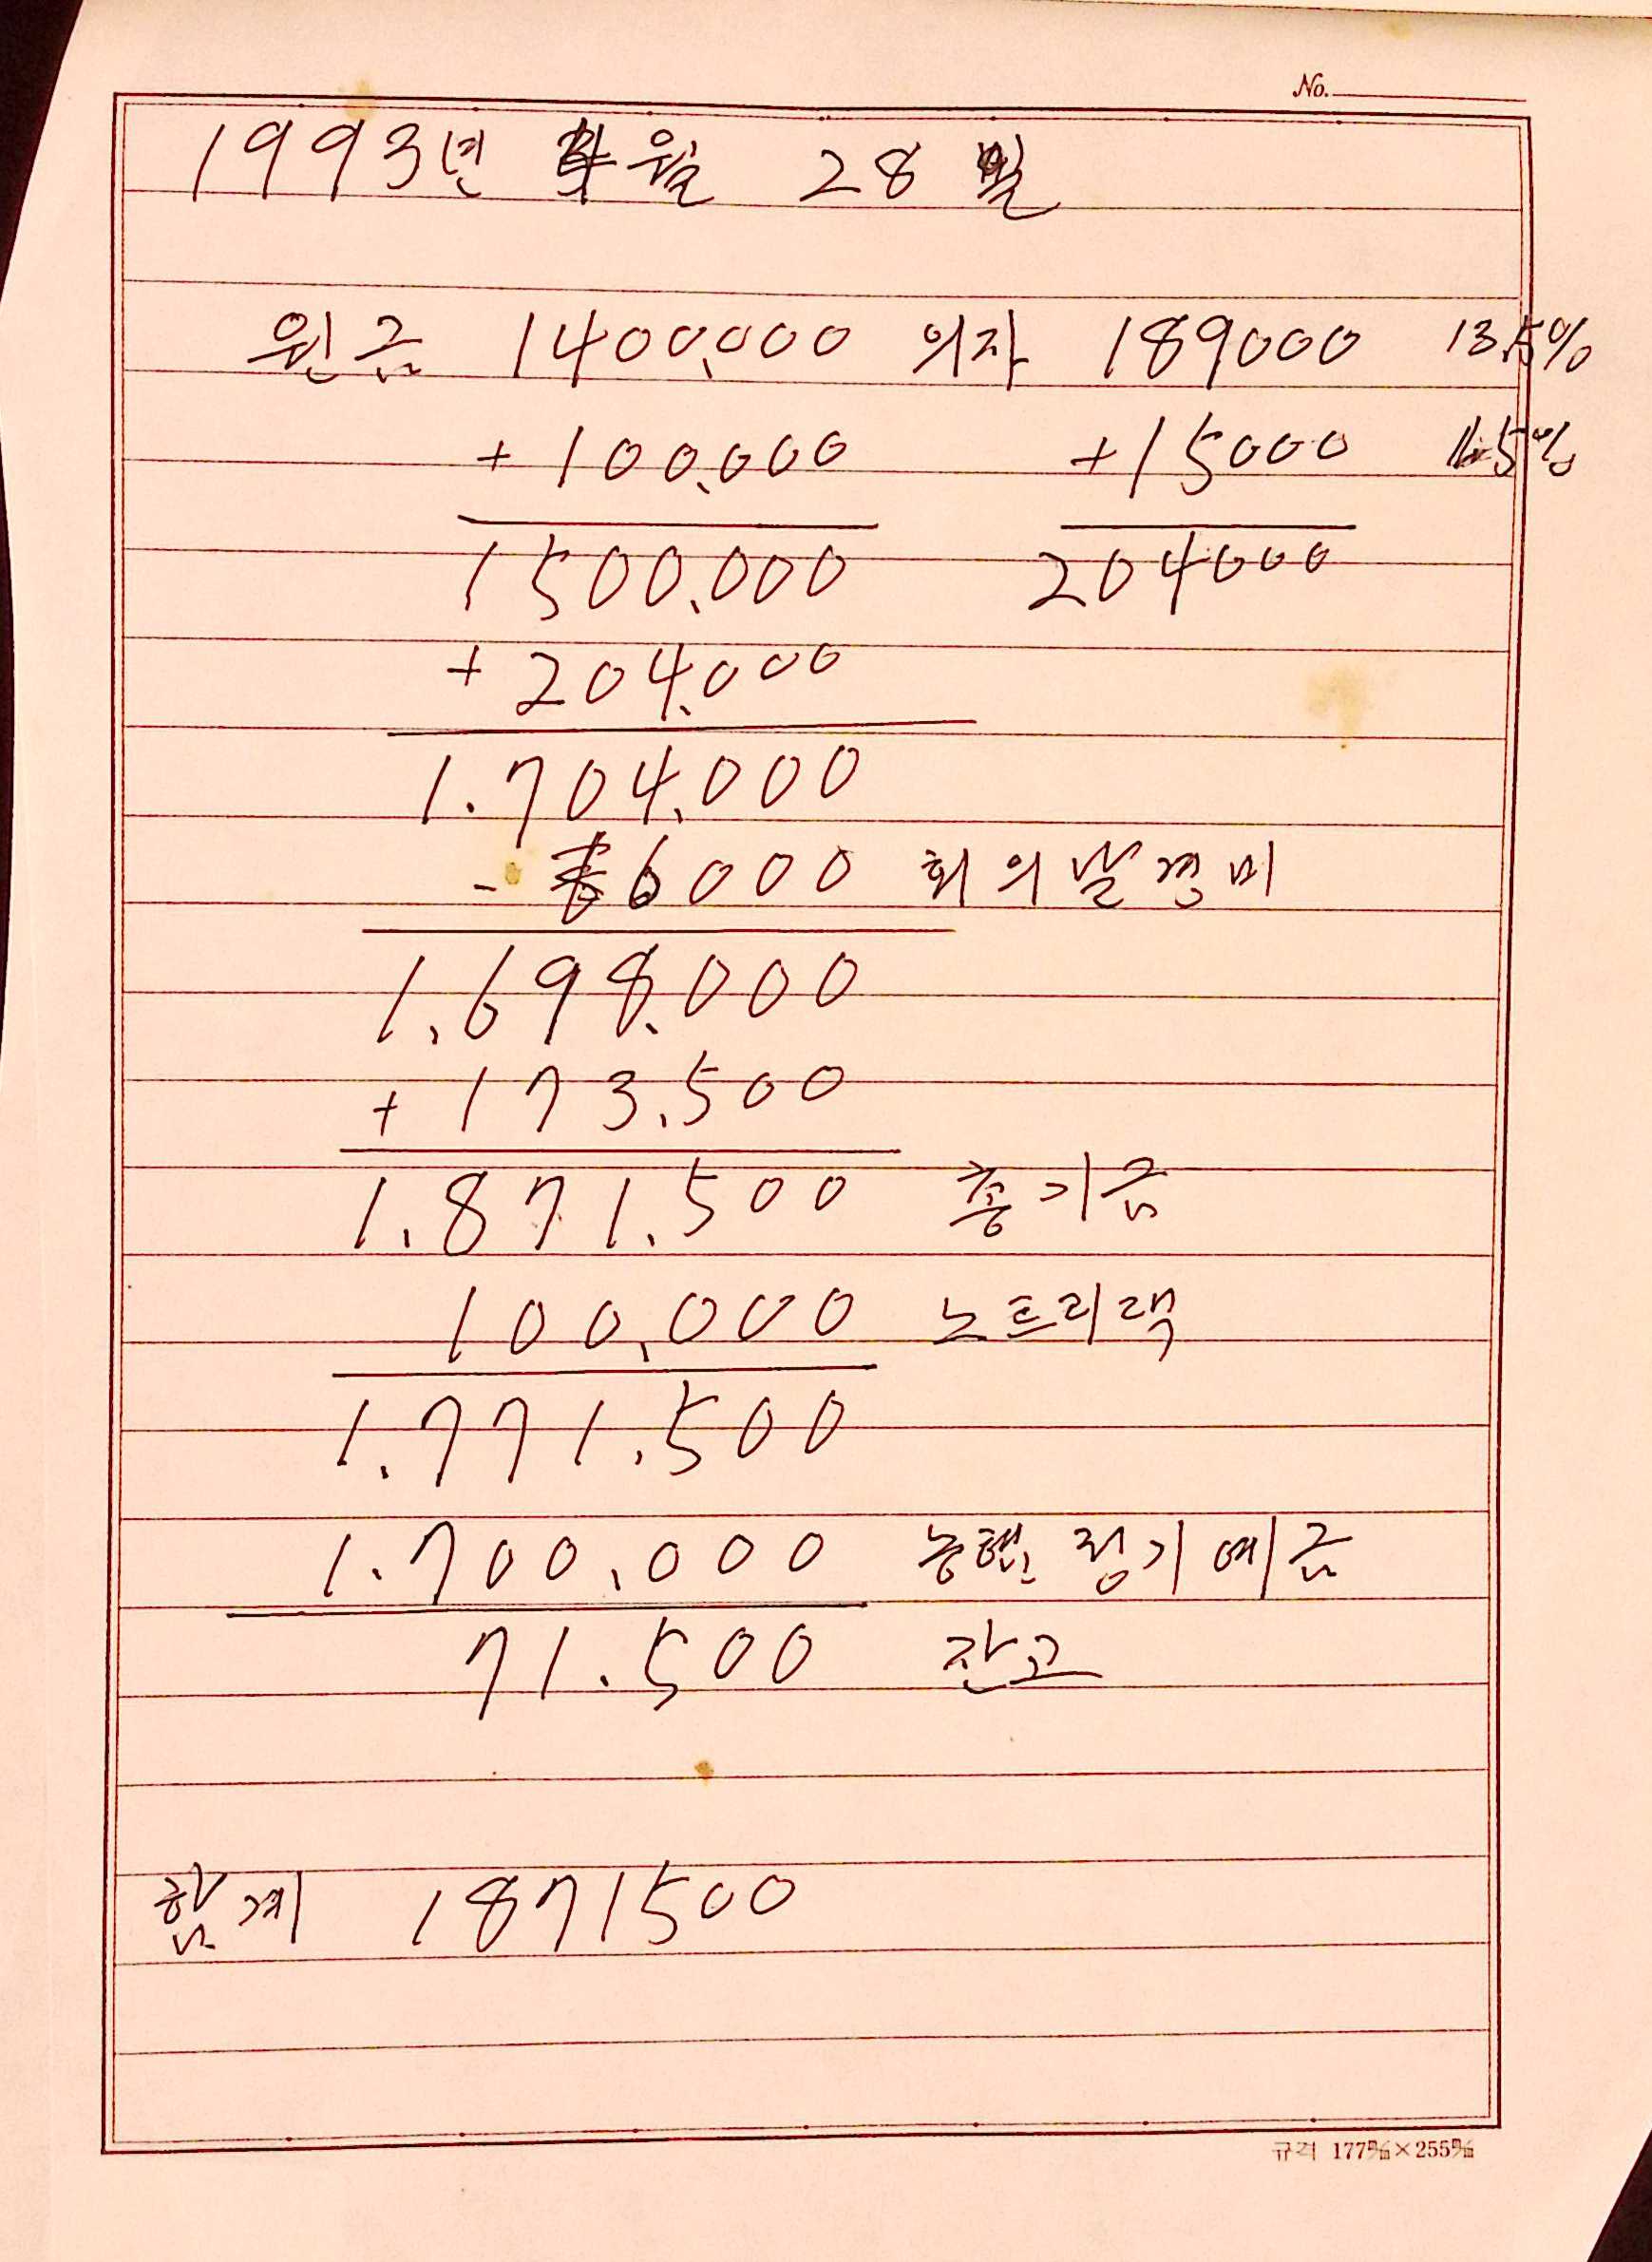 No.
1993년 월 28일
원금 1400,000 의자 189000 13.5%
+ 100,000 +15000 15%
1500,000 204000
+ 204,000
1.704,000
- 6000 회의날경비
1,698,000
+ 173,500
1.871.500 총기금
100,000 노트리랙
1.771,500
1.700,000 농협 정기예금
71.500 잔고
합계 1871500
규격 177㎜×255㎜